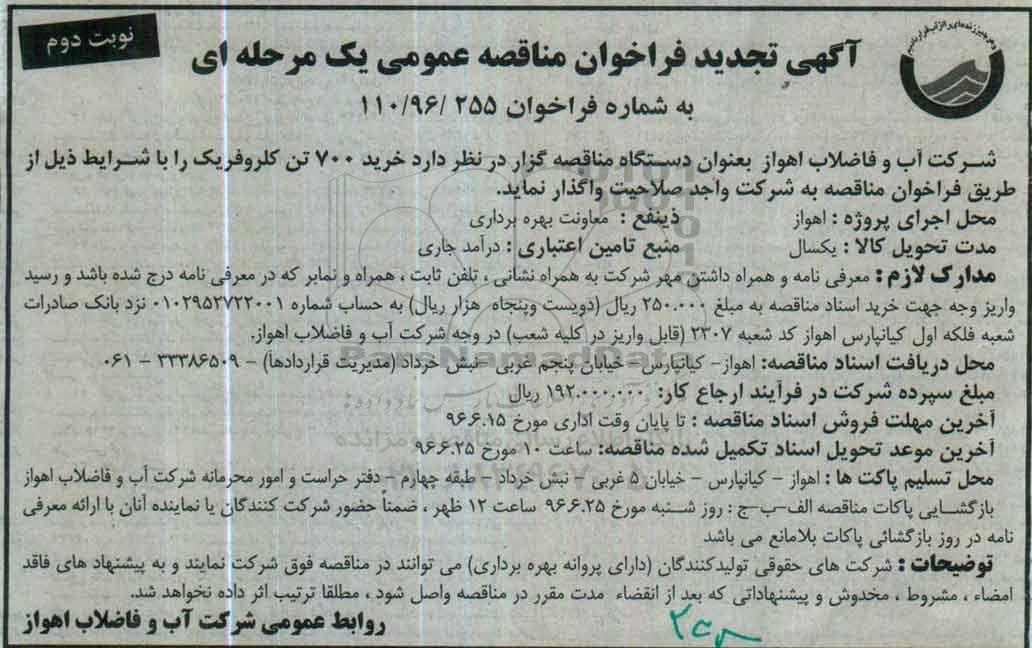 نوبت دوم
آگهی تجدید فراخوان مناقصه عمومی یک مرحله ای
به شماره فراخوان ۲۵۵ /۱۱۰/۹۶
شرکت آب و فاضلاب اهواز بعنوان دستگاه مناقصه گزار در نظر دارد خرید ۷۰۰ تن کلروفریک را با شرایط ذیل از
طریق فراخوان مناقصه به شرکت واجد صلاحیت واگذار نماید.
محل اجرای پروژه : اهواز ذینفع : معاونت بهره برداری
مدت تحویل کالا : یکسال منبع تامین اعتباری : درآمد جاری
مدارک لازم : معرفی نامه و همراه داشتن مهر شرکت به همراه نشانی ، تلفن ثابت ، همراه و نمابر که در معرفی نامه درج شده باشد و رسید
واریز وجه جهت خرید اسناد مناقصه به مبلغ ۲۵۰.۰۰۰ ریال (دویست وپنجاه هزار ریال) به حساب شماره ۰۱۰۲۹۵۲۷۲۲۰۰۱ نزد بانک صادرات
شعبه فلکه اول کیانپارس اهواز کد شعبه ۲۳۰۷ (قابل واریز در کلیه شعب) در وجه شرکت آب و فاضلاب اهواز.
محل دریافت اسناد مناقصه: اهواز- کیانپارس - خیابان پنجم غربی - نبش خرداد (مدیریت قراردادها) - ۳۳۳۸۶۵۰۹ - ۰۶۱
مبلغ سپرده شرکت در فرآیند ارجاع کار: ۱۹۲.۰۰۰.۰۰۰ ریال
آخرین مهلت فروش اسناد مناقصه : تا پایان وقت اداری مورخ ۹۶.۶.۱۵
آخرین موعد تحویل اسناد تکمیل شده مناقصه: ساعت ۱۰ مورخ ۹۶.۶.۲۵
محل تسلیم پاکت ها : اهواز - کیانپارس - خیابان ۵ غربی - نبش خرداد - طبقه چهارم - دفتر حراست و امور محرمانه شرکت آب و فاضلاب اهواز
بازگشایی پاکات مناقصه الف-ب-ج : روز شنبه مورخ ۹۶.۶.۲۵ ساعت ۱۲ ظهر ، ضمناً حضور شرکت کنندگان یا نماینده آنان با ارائه معرفی
نامه در روز بازگشائی پاکات بلامانع می باشد
توضیحات : شرکت های حقوقی تولیدکنندگان (دارای پروانه بهره برداری) می توانند در مناقصه فوق شرکت نمایند و به پیشنهاد های فاقد
امضاء ، مشروط ، مخدوش و پیشنهاداتی که بعد از انقضاء مدت مقرر در مناقصه واصل شود ، مطلقا ترتیب اثر داده نخواهد شد.
روابط عمومی شرکت آب و فاضلاب اهواز
ParsNamadData